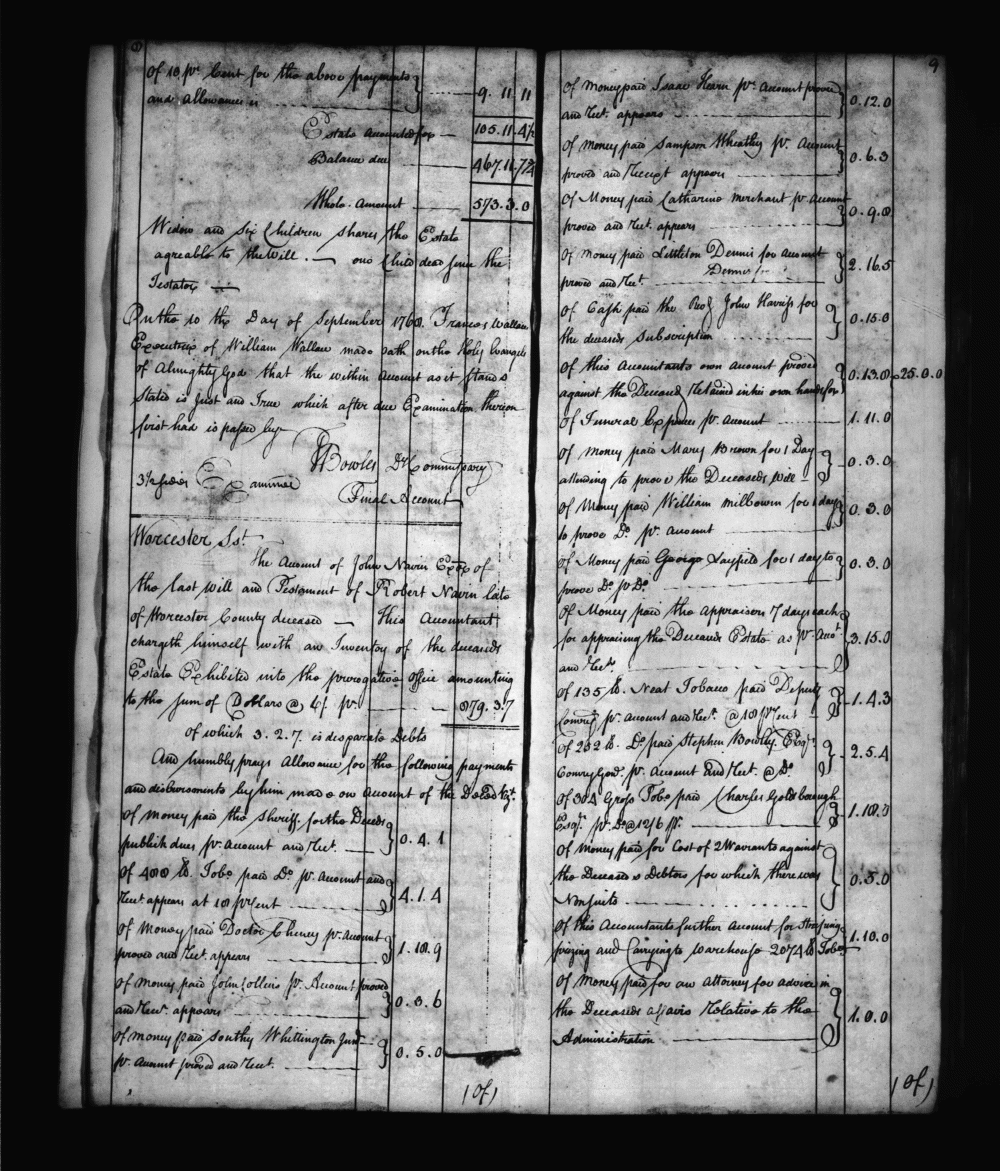 Of 10 pr. Cent for the above payments
and allowances is 9. 11. 11
Estate Accounted for 105.11.4½
Balance due 467.11.7¾
Whole Amount 573.3.0
Widow and Six Children Shares the Estate
agreable to the Will. — one Child dead since the
Testator —
On the 10th Day of September 1760. Frances Wallace
Executrix of William Wallace made oath on the Holy Evangels
of Almighty God that the within Account as it Stands
Stated is Just and True which after due Examination thereon
first had is passed by
Bowles Dy. Commissary
Examined
Final Account
Worcester Sst.
The Account of John Navin Exor. of
the Last Will and Testament of Robert Navin late
of Worcester County deceased — This Accountant
chargeth himself with an Inventory of the deceaseds
Estate Exhibited into the prerogative Office amounting
to the Sum of Dollars @ 879.3.7
of which 3. 2. 7. is desparate Debts
And humbly prays Allowance for the following payments
and disbursments by him made on Account of the
Of Money paid the Sheriff for the Deceds.
publick dues pr. Account and Rect. 0. 4. 1
Of 400 lb. Tobo. paid Do. pr. Account and
Rect. appears at 4. 1. 4
Of Money paid Doctor Cheney pr. Account
proved and Rect. appears 1. 10. 9
Of Money paid John Collins pr. Account proved
and Rect. appears 0. 3. 6
Of Money paid Southy Whittington Junr.
pr. Account proved and Rect. 0. 5. 0
(Of)
9
Of Money paid Isaac Hearn pr. Account proved
and Rect. appears 0. 12. 0
Of Money paid Sampson Wheatly pr. Account
proved and Receipt appears 0. 6. 3
Of Money paid Catharine Merchant pr. Account
proved and Rect. appears 0. 9. 0
Of Money paid Littleton Dennis for Account
proved and Rect. 2. 16. 5
Of Cash paid the Revd. John Harriss for
the deceaseds Subscription 0. 15. 0
Of this Accountants own Account proved
against the Deceased Retained in his own hands for 0. 13. 0 25. 0. 0
Of Funeral Expences pr. Account 1. 11. 0
Of Money paid Mary Brown for 1 Day
attending to prove the Deceaseds Will 0. 3. 0
Of Money paid William Milbourn for 1 day
to prove Do. pr. Account 0. 3. 0
Of Money paid George Layfield for 1 day to
prove Do. pr. Do. 0. 3. 0
Of Money paid the Appraisers 7 days each
for appraising the Deceaseds Estate as pr. Acct.
and Rect. 3. 15. 0
Of 135 lb. Neat Tobacco paid Deputy
Comry. pr. Account and Rect. @ 1. 4. 3
Of 252 lb. Do. paid Stephen Bordley Esqr.
Comry. Genl. pr. Account and Rect. @ Do. 2. 5. 4
Of 304 Gross Tobo. paid Charles Goldsborough
Esqr. pr. Do. @ 12/6 pr. 1. 18. 0
Of Money paid for Cost of 2 Warrants against
the Deceaseds Debtors for which there was
Nonsuits 0. 5. 0
Of this Accountants further Account for
prizing and Carrying to warehouse 2074 lb Tobo. 1. 10. 0
Of Money paid for an Attorney for advice in
the Deceaseds affairs Relative to the
Administration 1. 0. 0
(Of)